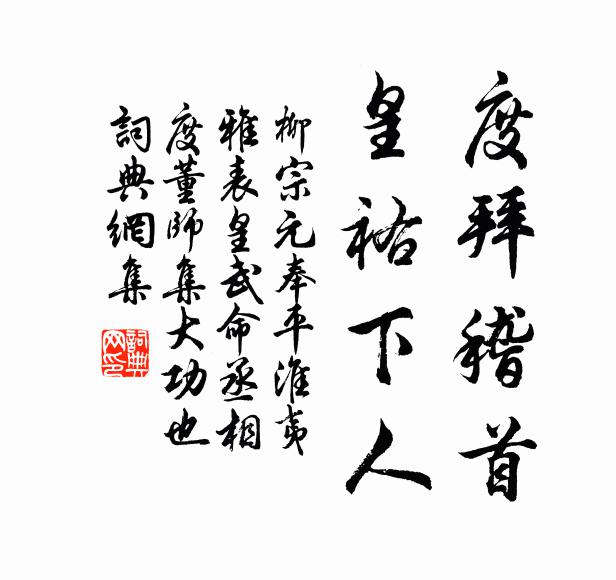 度拜稽首
皇祐下人
柳宗元奉平淮夷
雅表皇武命丞相
度董師集大功也
詞典網集
詞典
网印